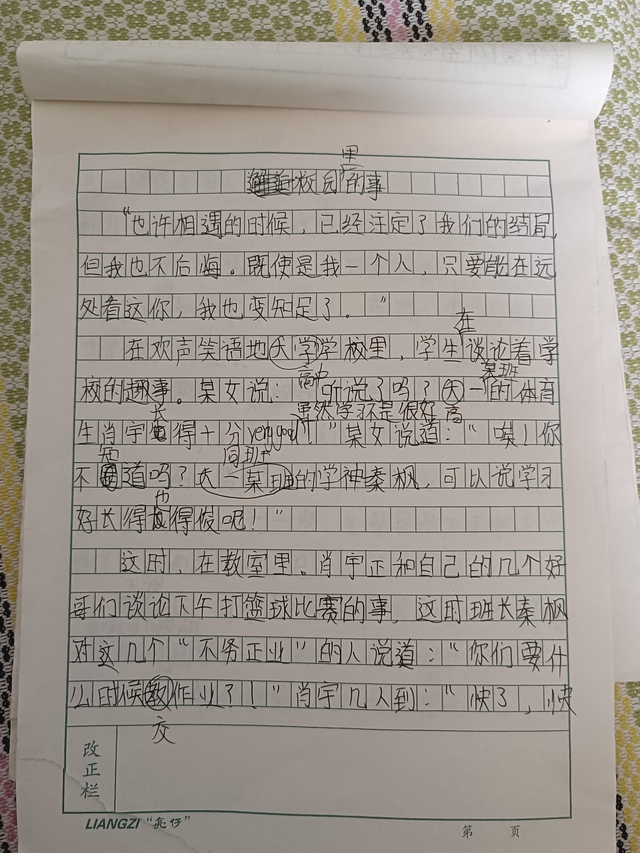 里
校园的事
“也许相遇的时候，已经注定了我们的结局，
但我也不后悔。既使是我一个人，只要能在远
处看这你，我也变知足了。”
在
在欢声笑语地大学学校里，学生谈论着学
高中
某班
校的趣事。某女说：“听说了吗？大一的体育
长
虽然学习不是很好
高
生肖宇得十分very good！”某女说道：“唉！你
知
同班
不道吗？大一某班的学神秦枫，可以说学习
也
好长得得俊呢！”
这时，在教室里。肖宇正和自己的几个好
哥们谈论下午打篮球比赛的事，这时班长秦枫
对这几个“不务正业”的人说道：“你们要什
么时候教作业了！”肖宇几人到：“快了，快
交
改正栏
LIANGZI “亮仔”
第 页